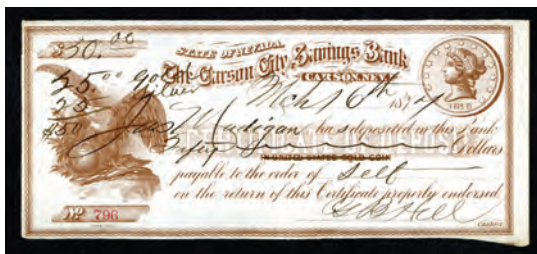 $50.00
STATE OF NEVADA.
The Carson City Savings Bank
CARSON, NEV.
Mch 16th 1874
25.00 gold
25 silver
$50
Jas Madigan has deposited in this Bank
Fifty Dollars
IN UNITED STATES GOLD COIN
payable to the order of Self
on the return of this Certificate properly endorsed.
Cashier
No 796